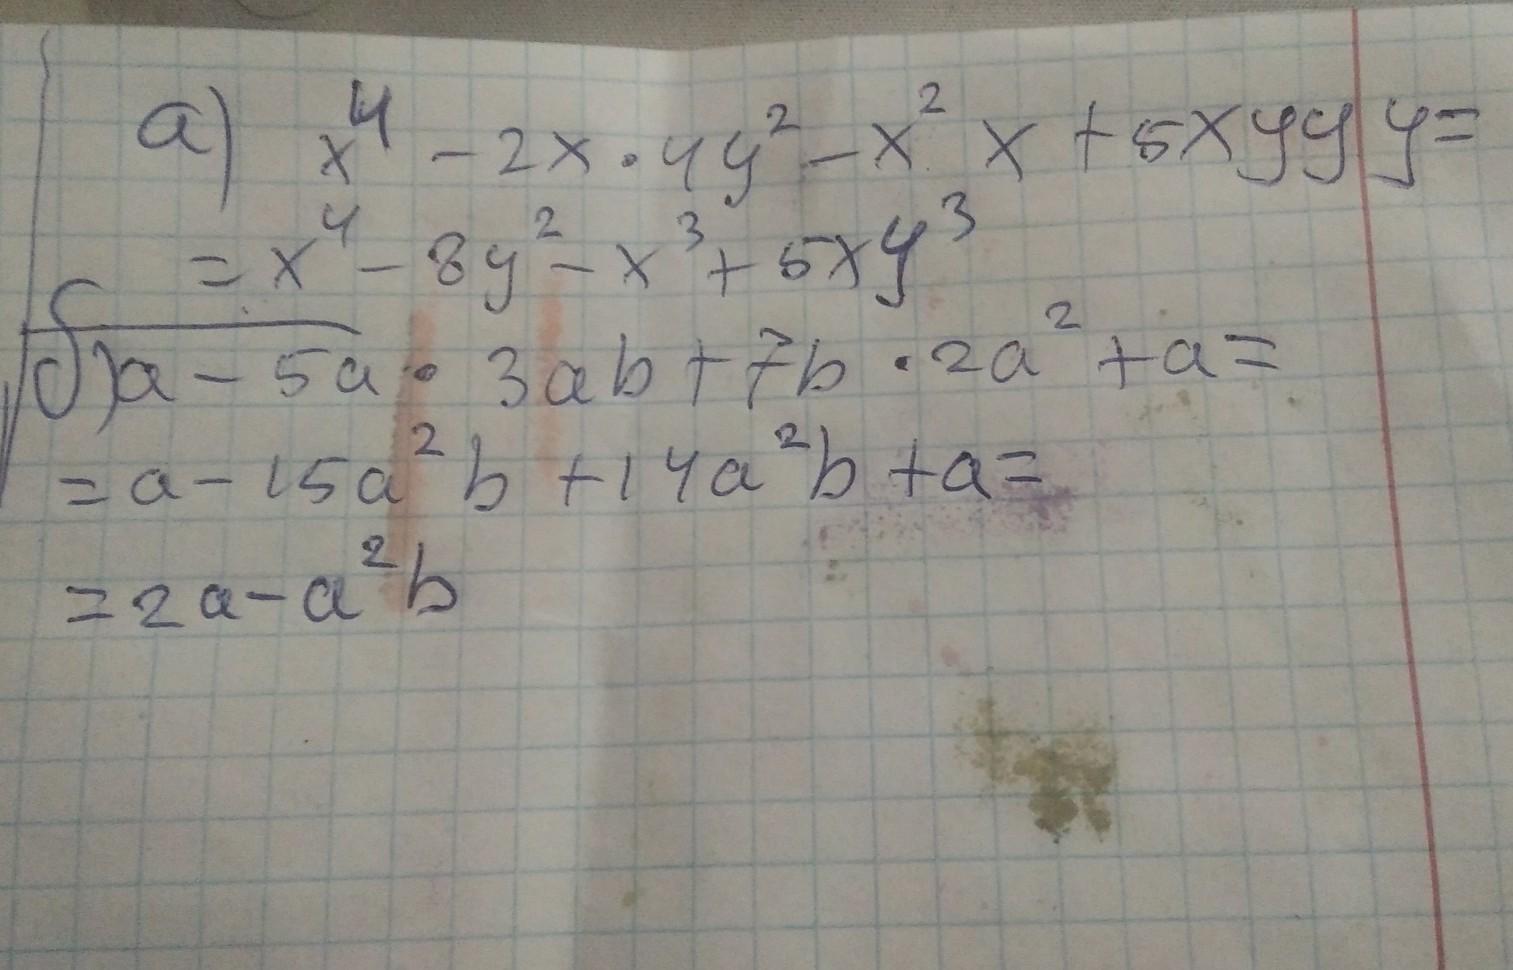 а) x⁴ - 2x · 4y² - x² x + 5xyyy =
= x⁴ - 8y² - x³ + 5xy³
б) a - 5a · 3ab + 7b · 2a² + a =
= a - 15a²b + 14a²b + a =
= 2a - a²b